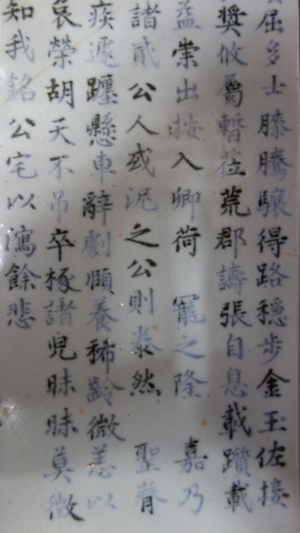 屈多士騰驤得路穩步金玉佐接
獎攸屬暫莅荒郡譸張自息載躓載
益崇出按入卿荷 寵之隆 嘉乃
諸貳公人或泥之公則泰然 聖眷
疾遽躔懸車辭劇頤養稀齡微恙以
哀榮胡天不吊卒椓諸兒昧昧莫徵
知我銘公宅以寫餘悲